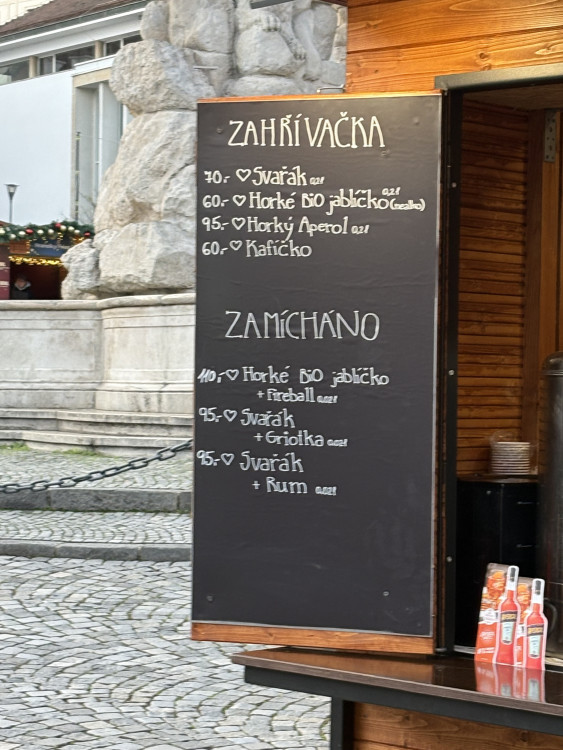 ZAHŘÍVAČKA
70,- ♡ Svařák 0,2l
60,- ♡ Horké BiO jablíčko 0,2l (nealko)
95,- ♡ Horký Aperol 0,2l
60,- ♡ Kafíčko
ZAMÍCHÁNO
110,- ♡ Horké BiO jablíčko
+ Fireball 0,02l
95,- ♡ Svařák
+ Griotka 0,02l
95,- ♡ Svařák
+ Rum 0,02l